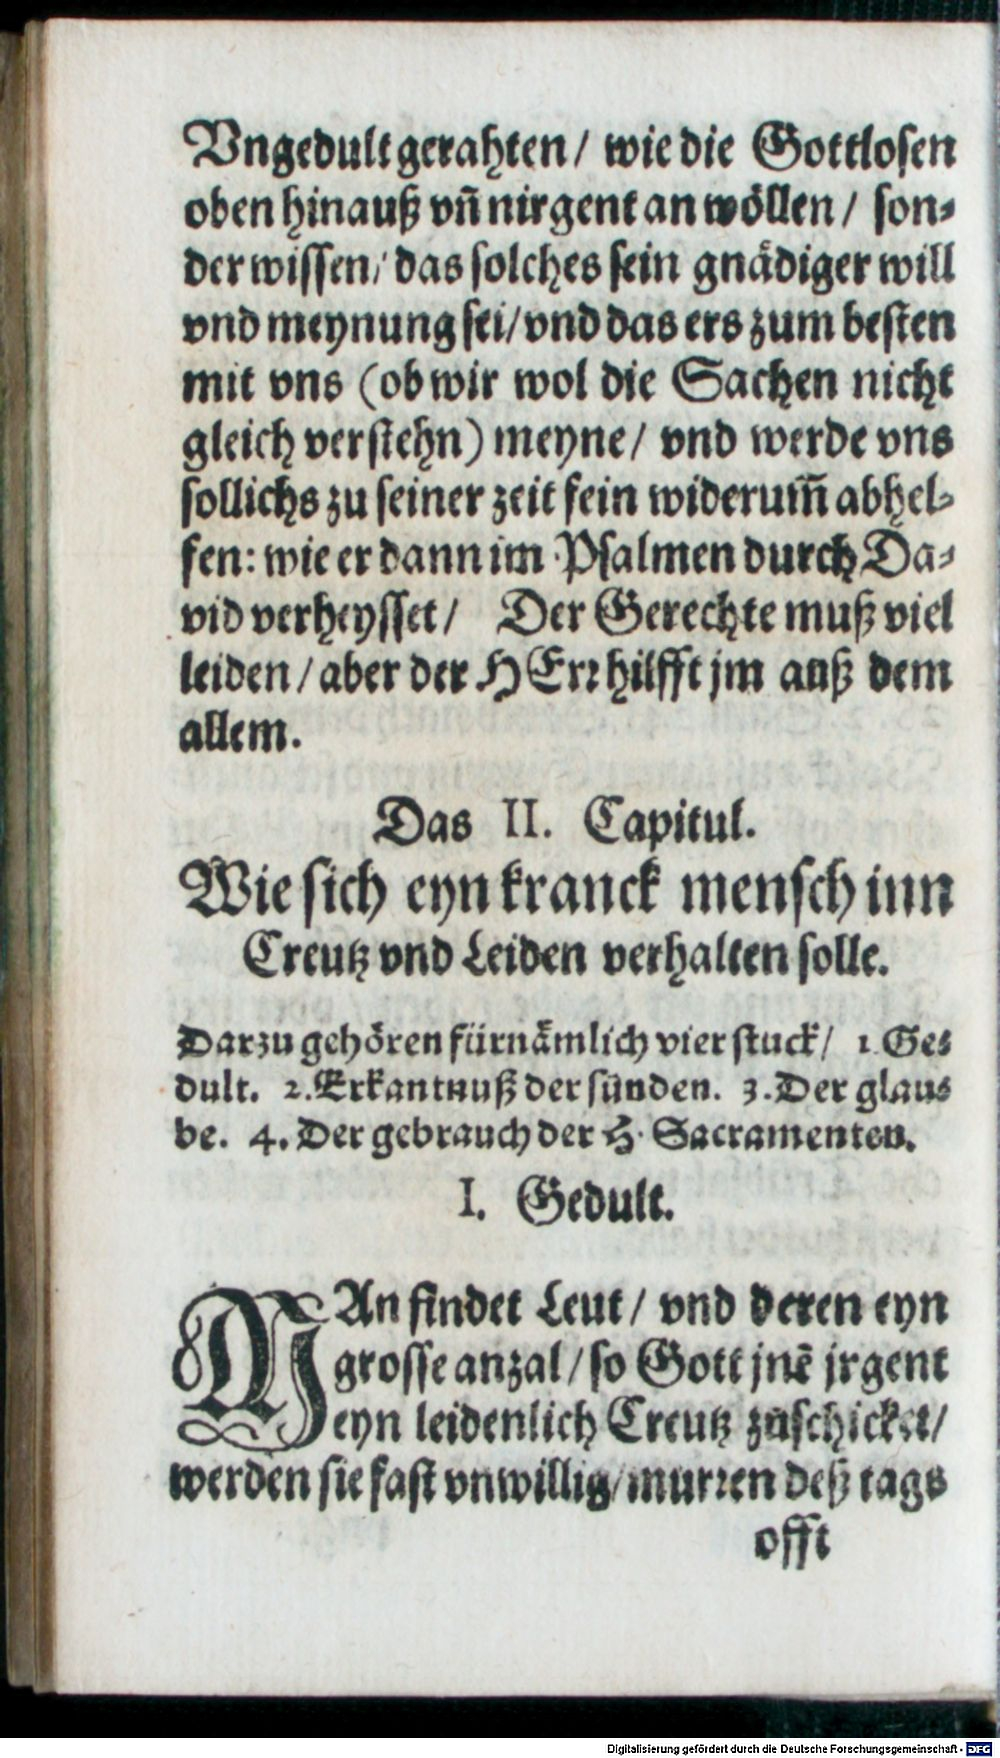 Vngedult gerahten/ wie die Gottlosen
oben hinauß vñ nirgent an wöllen/ son-
der wissen/ das solches sein gnädiger will
vnd meynung sei/ vnd das ers zum besten
mit vns (ob wir wol die Sachen nicht
gleich verstehn) meyne/ vnd werde vns
sollichs zu seiner zeit fein widerum̃ abhel-
fen: wie er dann im Psalmen durch Da-
vid verheysset/ Der Gerechte muß viel
leiden/ aber der HErr hilfft jm auß dem
allem.
Das II. Capitul.
Wie sich eyn kranck mensch inn
Creutz vnd Leiden verhalten solle.
Darzu gehören fürnämlich vier stuck/ 1. Ge-
dult. 2. Erkantnuß der sünden. 3. Der glau-
be. 4. Der gebrauch der H. Sacramenten.
I. Gedult.
MAn findet Leut/ vnd deren eyn
grosse anzal/ so Gott jnē jrgent
eyn leidenlich Creutz zůschicket/
werden sie fast vnwillig/ murren deß tags
offt
Digitalisierung gefördert durch die Deutsche Forschungsgemeinschaft - DFG